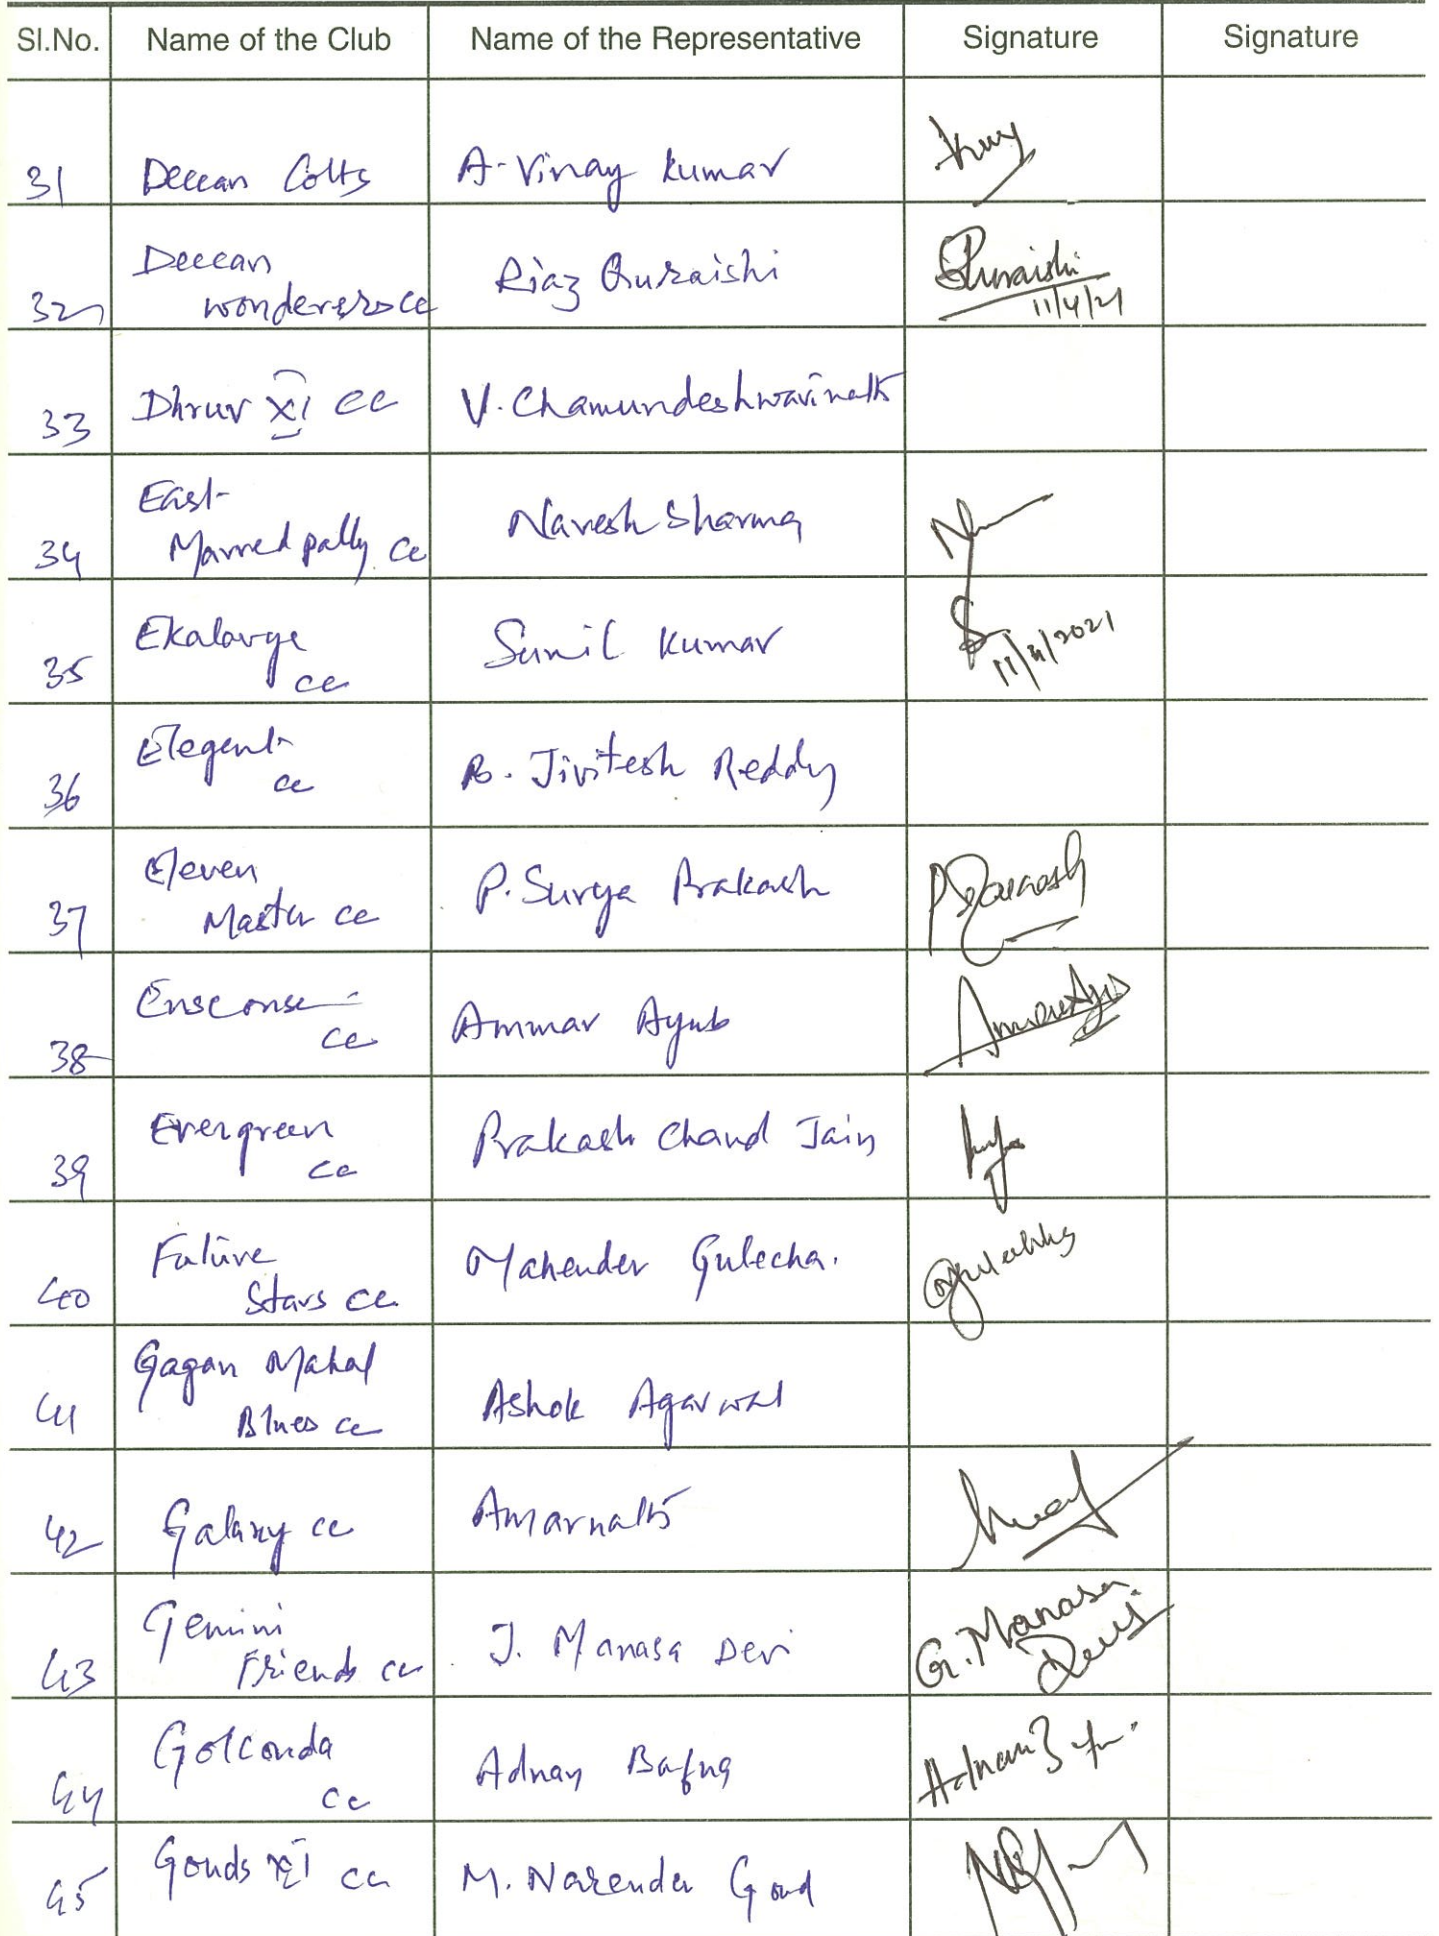 Sl.No. Name of the Club Name of the Representative Signature Signature
31 Deccan Colts A. Vinay Kumar
32 Deccan wonderers cc Riaz Quraishi Quraishi 11/4/21
33 Dhruv XI CC V. Chamundeshwarinath
34 East Marredpally cc Naresh Sharma
35 Ekalavya cc Sunil Kumar 11/4/2021
36 Elegent cc B. Jivitesh Reddy
37 Eleven Master cc P. Surya Prakash
38 Ensconse cc Ammar Ayub
39 Evergreen cc Prakash Chand Jain
40 Future Stars cc. Mahender Gulecha.
41 Gagan Mahal Blues cc Ashok Agarwal
42 Galaxy cc Amarnath
43 Gemini Friends cc J. Manasa Devi G. Manasa Devi
44 Golconda cc Adnan Bafna Adnan
45 Gouds XI cc M. Narender Goud